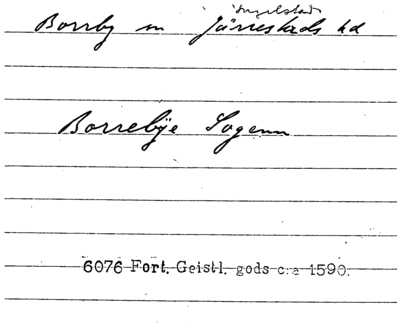 Ingelstads
Borrby sn Järrestads hd
Borrebÿe Sogenn
6076 Fort. Geistl. gods c:a 1590.